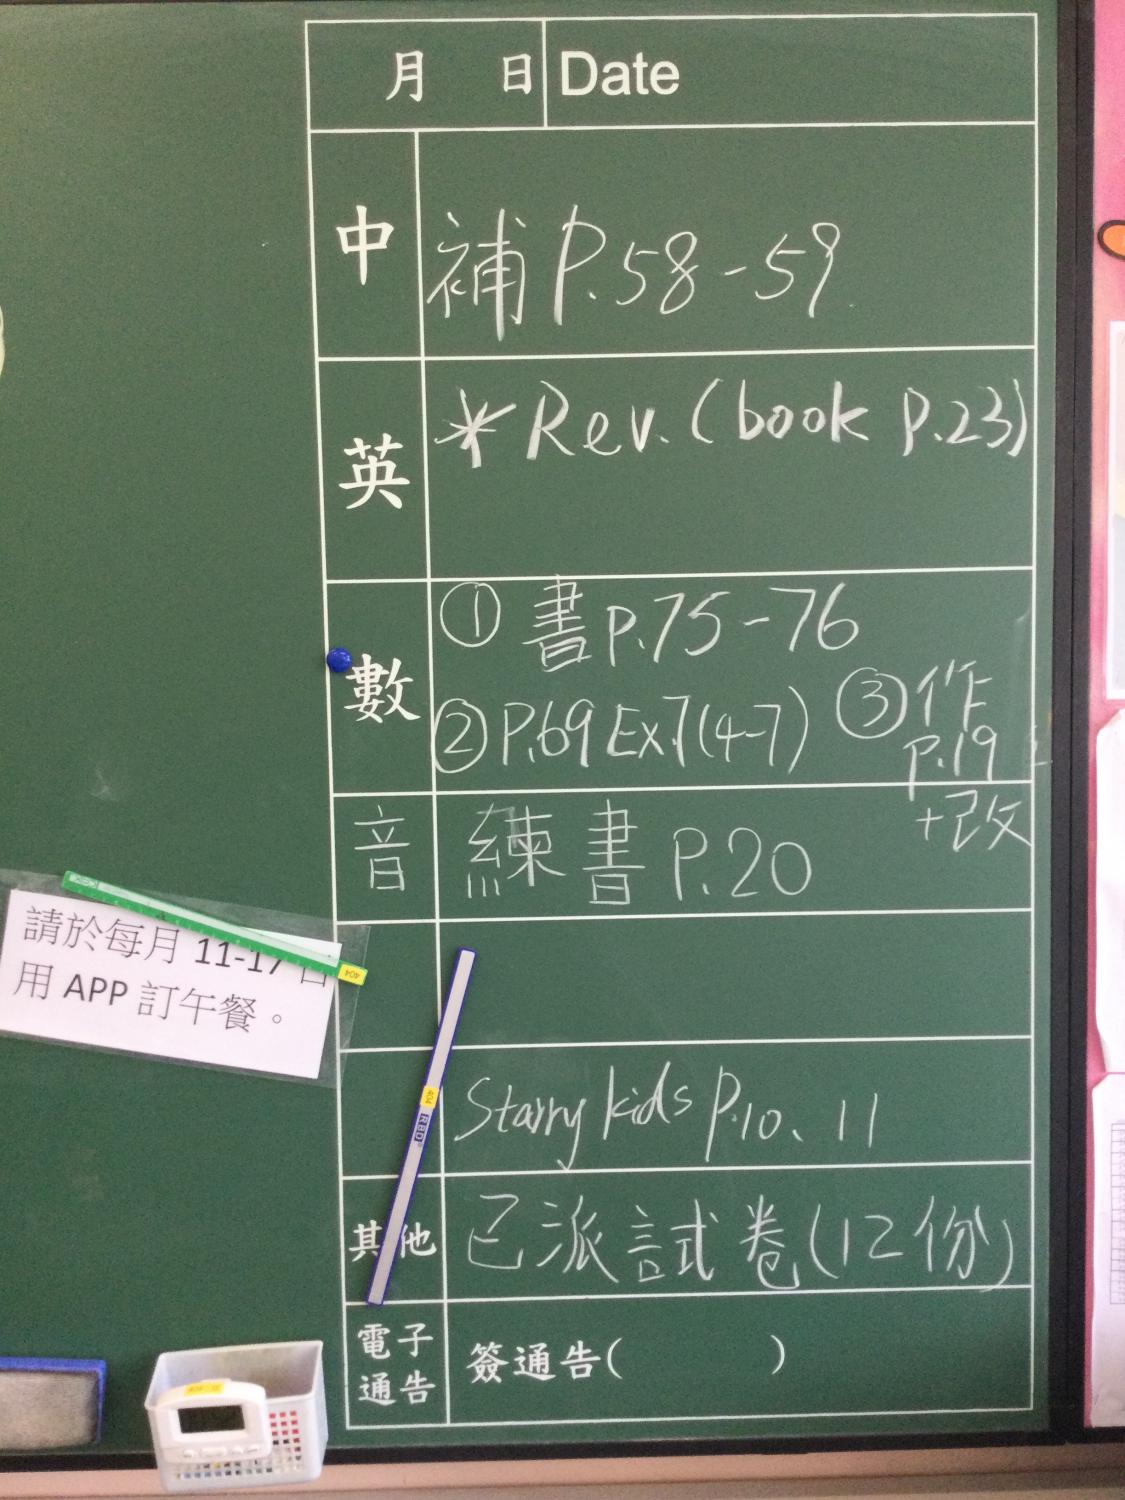 月 日 Date
中 補 P.58-59
英 * Rev. (book p.23)
數 ① 書 p.75-76
② P.69 Ex.7(4-7) ③ 作
p.19
+改
音 練書 P.20
Starry kids p.10、11
其他 已派試卷(12份)
電子
通告 簽通告( )
請於每月 11-17 日
用 APP 訂午餐。
404
404
RBD